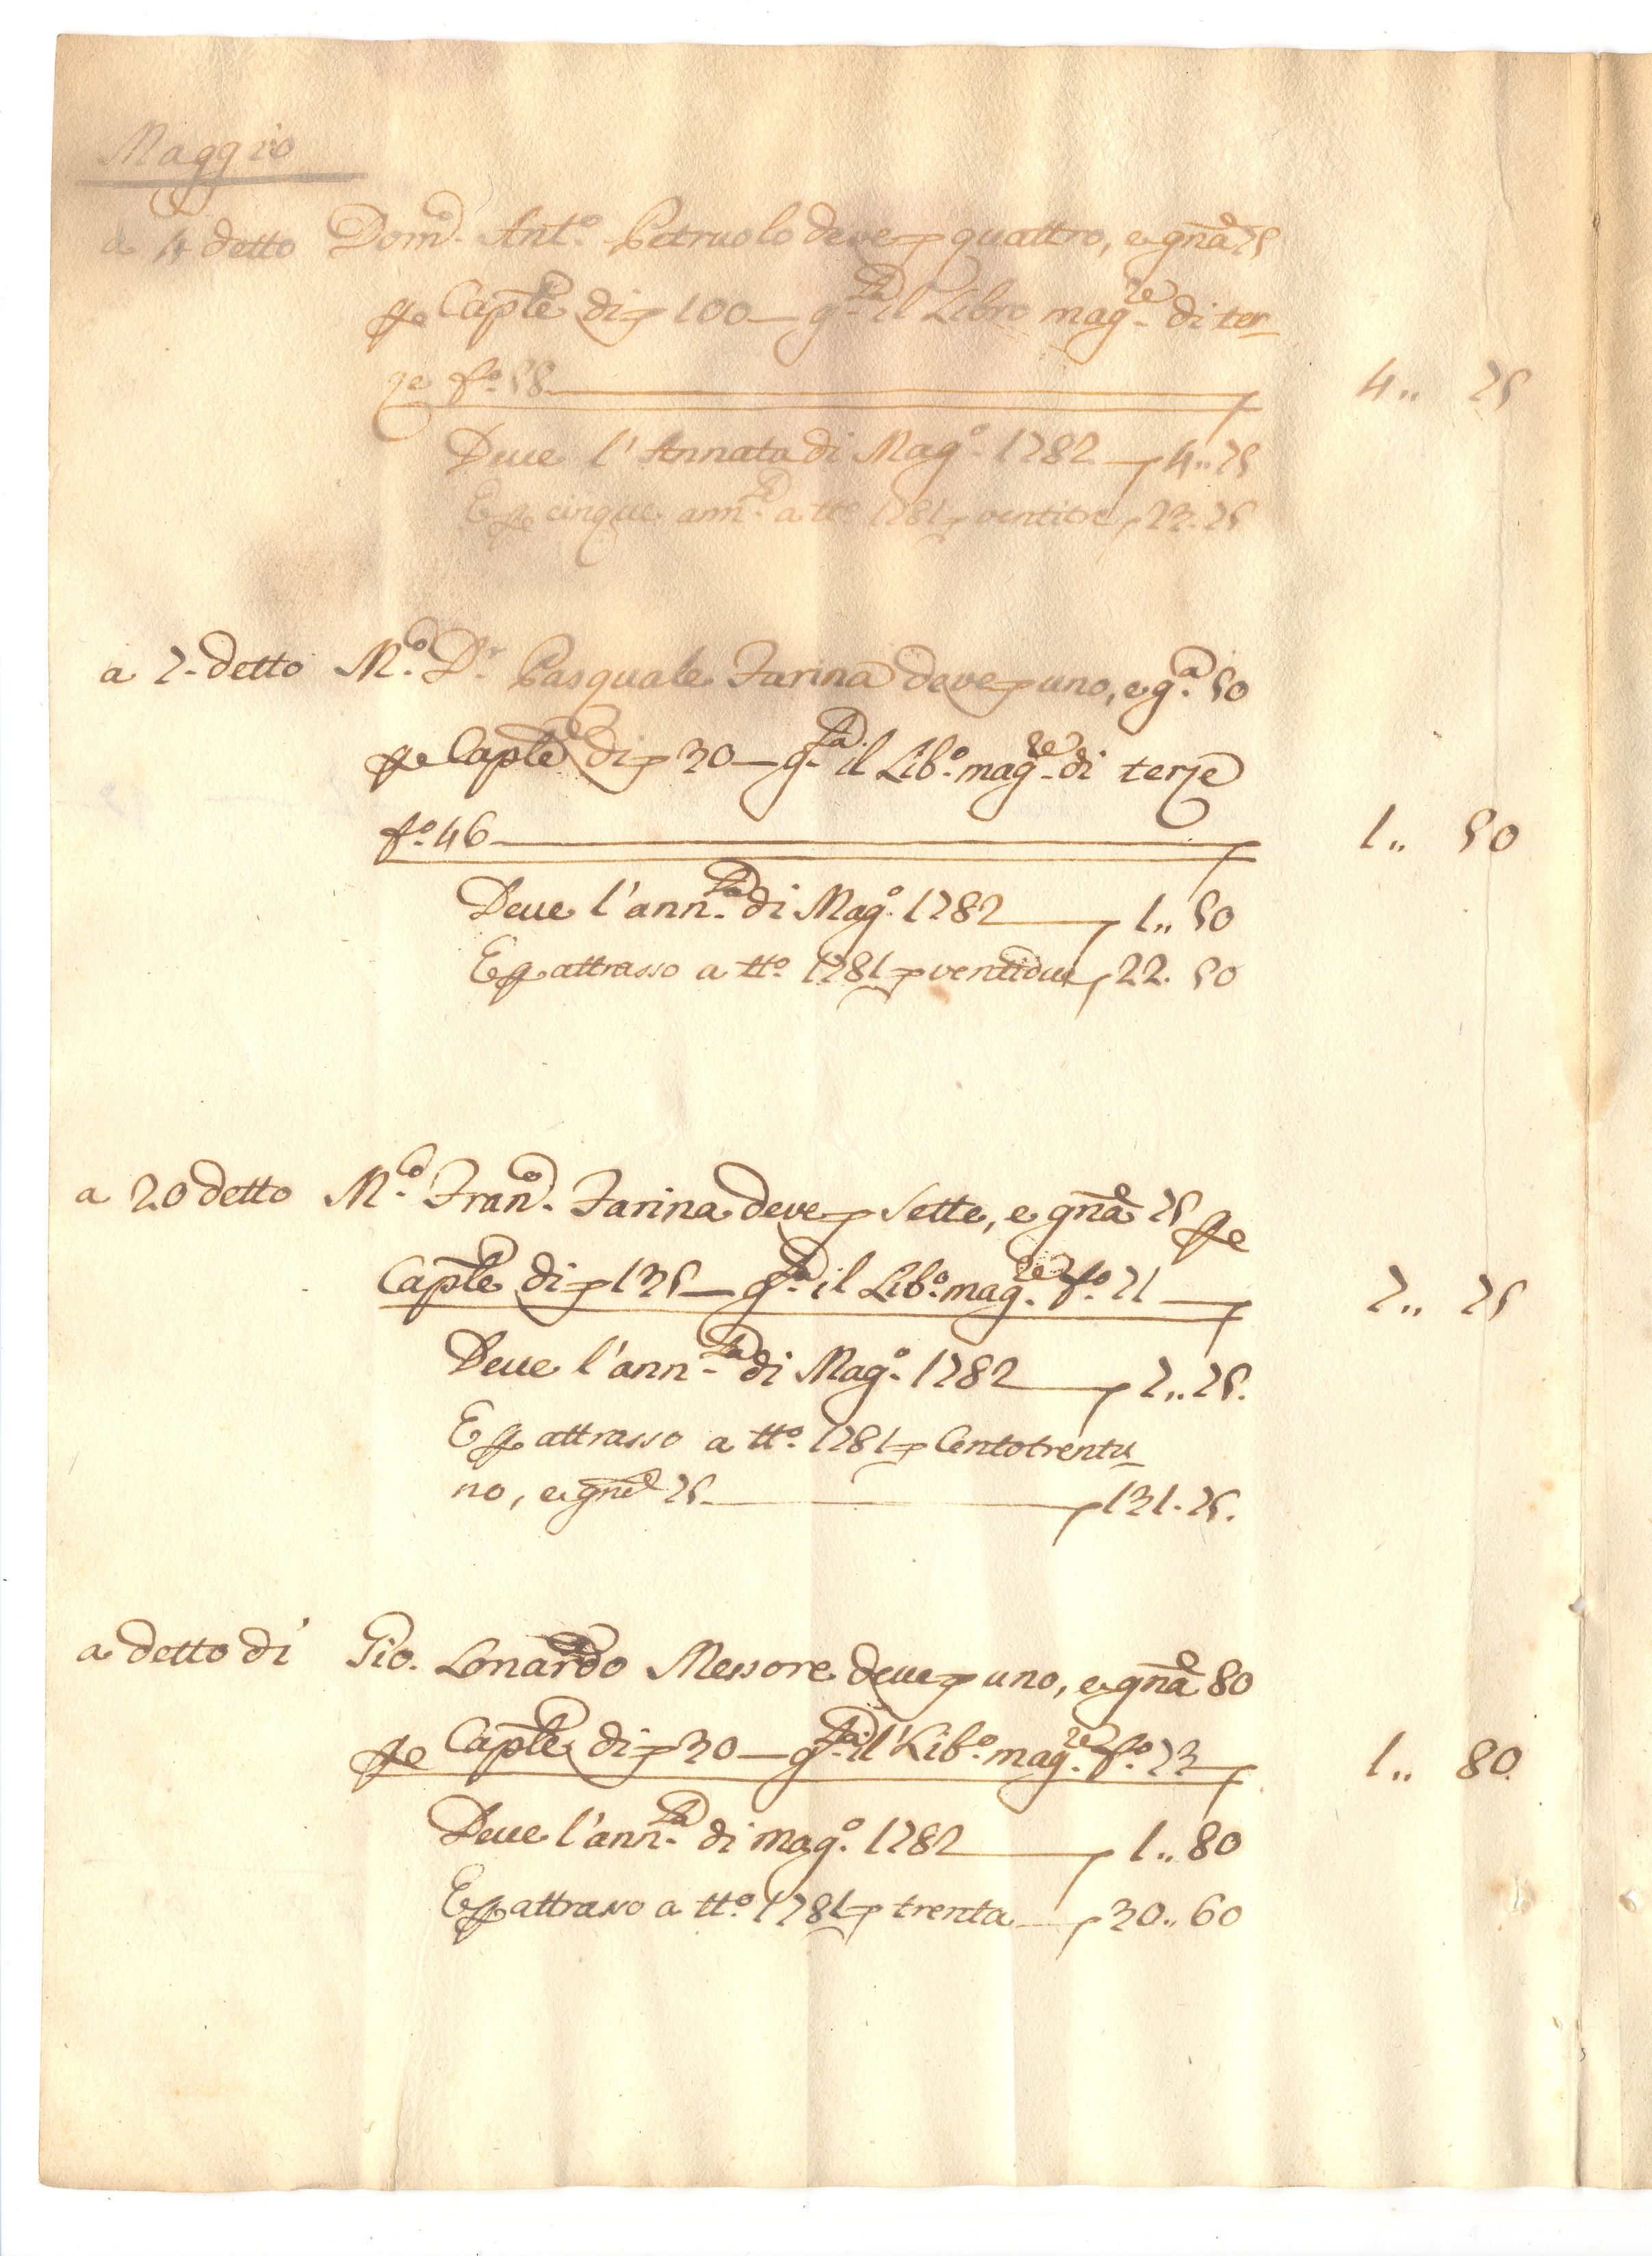 Maggio
a 4 detto Dom.co Ant.o Petruolo deve d quattro, e gna 75
per Cap.le di d 100 — g.ta il Libro mag.re di ter-
ze f.o 58 — d 4.. 75
Deve l'Annata di Mag.o 1782 — d 4.. 75
E per cinque ann.te a tt.o 1781 d ventitre d 23.75
a 7 detto M.co D.r Pasquale Farina deve d uno, e g.a 50
per Cap.le di d 30 — g.ta il Lib.o mag.re di terze
f.o 46 — d 1.. 50
Deve l'ann.ta di Mag.o 1782 — d 1.. 50
E per attrasso a tt.o 1781 d ventidue d 22. 50
a 20 detto M.co Fran.co Farina deve d Sette, e gna 75 per
Cap.le di d 135 — g.ta il Lib.o mag.re f.o 71 — d 7.. 75
Deve l'ann.ta di Mag.o 1782 — d 7.. 75.
E per attrasso a tt.o 1781 d Centotrentu-
no, e gna 75 — d 131.75.
a detto dì Gio. Lonardo Messore deve d uno, e gna 80
per Cap.le di d 30 — g.ta il Lib.o mag.re f.o 73 d 1.. 80.
Deve l'ann.ta di mag.o 1782 — d 1.. 80
E per attrasso a tt.o 1781 d trenta — d 30.. 60